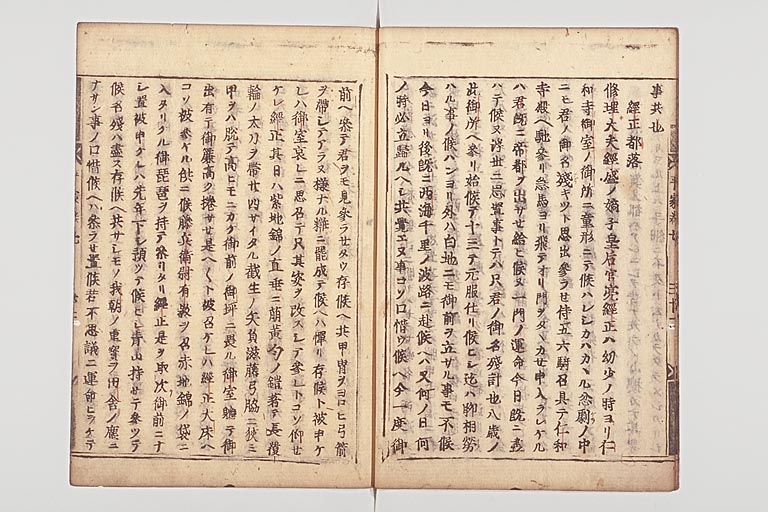 事共也
經正都落
修理大夫經盛ノ嫡子皇后宮亮經正ハ幼少ノ時ヨリ仁
和寺御室ノ御所ニ童形ニテ候ハレシカハカヽル怱劇ノ中
ニモ君ノ御名殘キツト思出參ラセ侍五六騎召具テ仁和
寺殿ヘ馳參リ急馬ヨリ飛テオリ門ヲタヽカセ申入ラレケル
ハ君既ニ帝都ヲ出サセ給ヒ候又一門ノ運命今日既ニ盡
ハテ候又浮世ニ思置事トテハ只君ノ御名殘計也八歳ノ
此御所ヘ參リ始候テ十三テ元服仕リ候ヒシ迄ハ聊相勞
ハル事ノ候ハンヨリ外ハ白地ニモ御前ヲ立サル事モ不候
今日ヨリ後既ニ西海千里ノ波路ニ赴候ヘハ又何ノ日何
ノ時必立歸ルヘシ共覺エヌ事コソ口惜ウ候ヘ今一度御
前ヘ參テ君ヲモ見參ラセタウ存候ヘ共甲冑ヲヨロヒ弓箭
ヲ帶シテアラヌ樣ナル粧ニ罷成テ候ヘハ憚リ存候ト被申ケ
レハ御室哀レニ思召テ只其姿ヲ改スシテ參レトコソ仰セ
ケレ經正其日ハ紫地錦ノ直垂ニ萠黄匂ノ鎧着テ長覆
輪ノ太刀ヲ帶廿四サイタル截生ノ矢負滋藤弓脇ニ狹ミ
甲ヲハ脱テ高ヒモニカケ御前ノ御坪ニ畏ル御室軈テ御
出有テ御簾高ク捲サセ是ヘヽト被召ケレハ經正大床ヘ
コソ被參ケル供ニ候藤兵衛尉有教ヲ召赤地錦ノ袋ニ
入タリケル御琵琶ヲ持テ參リタリ經正是ヲ取次御前ニサ
シ置被申ケルハ先年下シ預ツテ候ヒシ青山持セテ參ツテ
候名殘ハ盡ス存候ヘ共サシモノ我朝ノ重寶ヲ田舎ノ塵ニ
ナサン事ノ口惜候ヘハ參ラセ置候若不思議ニ運命ヒラケテ